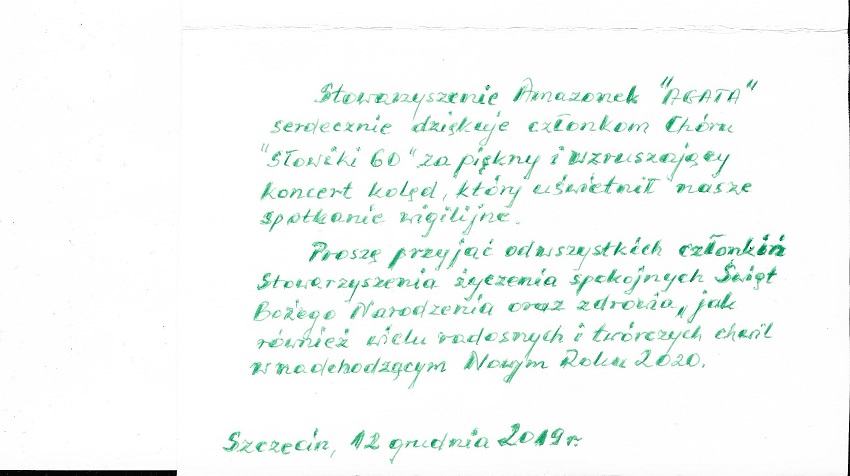 Stowarzyszenie Amazonek "AGATA"
serdecznie dziękuje członkom Chóru
"Słowiki 60" za piękny i wzruszający
koncert kolęd, który uświetnił nasze
spotkanie wigilijne.
Proszę przyjąć od wszystkich członkiń
Stowarzyszenia życzenia spokojnych Świąt
Bożego Narodzenia oraz zdrowia, jak
również wielu radosnych i twórczych chwil
w nadchodzącym Nowym Roku 2020.
Szczecin, 12 grudnia 2019 r.